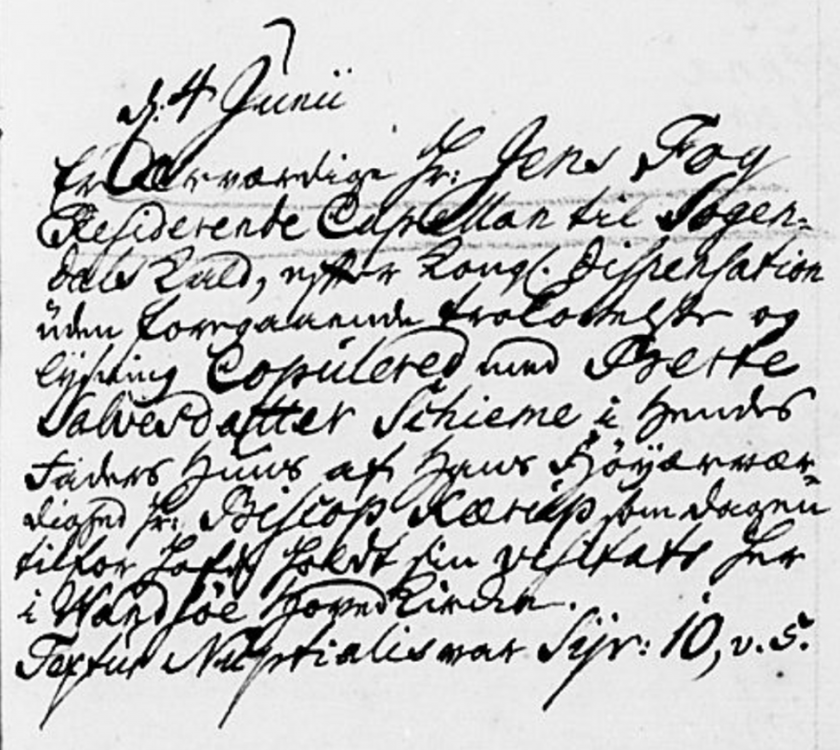 d. 4 Junii
Er Ærværdige Hr: Jens Fog
Residerende Capellan til Sogen-
dals Kald, efter Kongl. Dispensation
uden foregaaende trolovelse og
lysning Copulered med Berte
Salvesdatter Schieme i hendes
Faders Huus af Hans Höyærvær-
dighed Hr: Biscop Kærup som dagen
tilfor hafde holdt sin visitats her
i Wandsöe HovedKirche.
Textus Nuptialis var Syr: 10, v. 5.